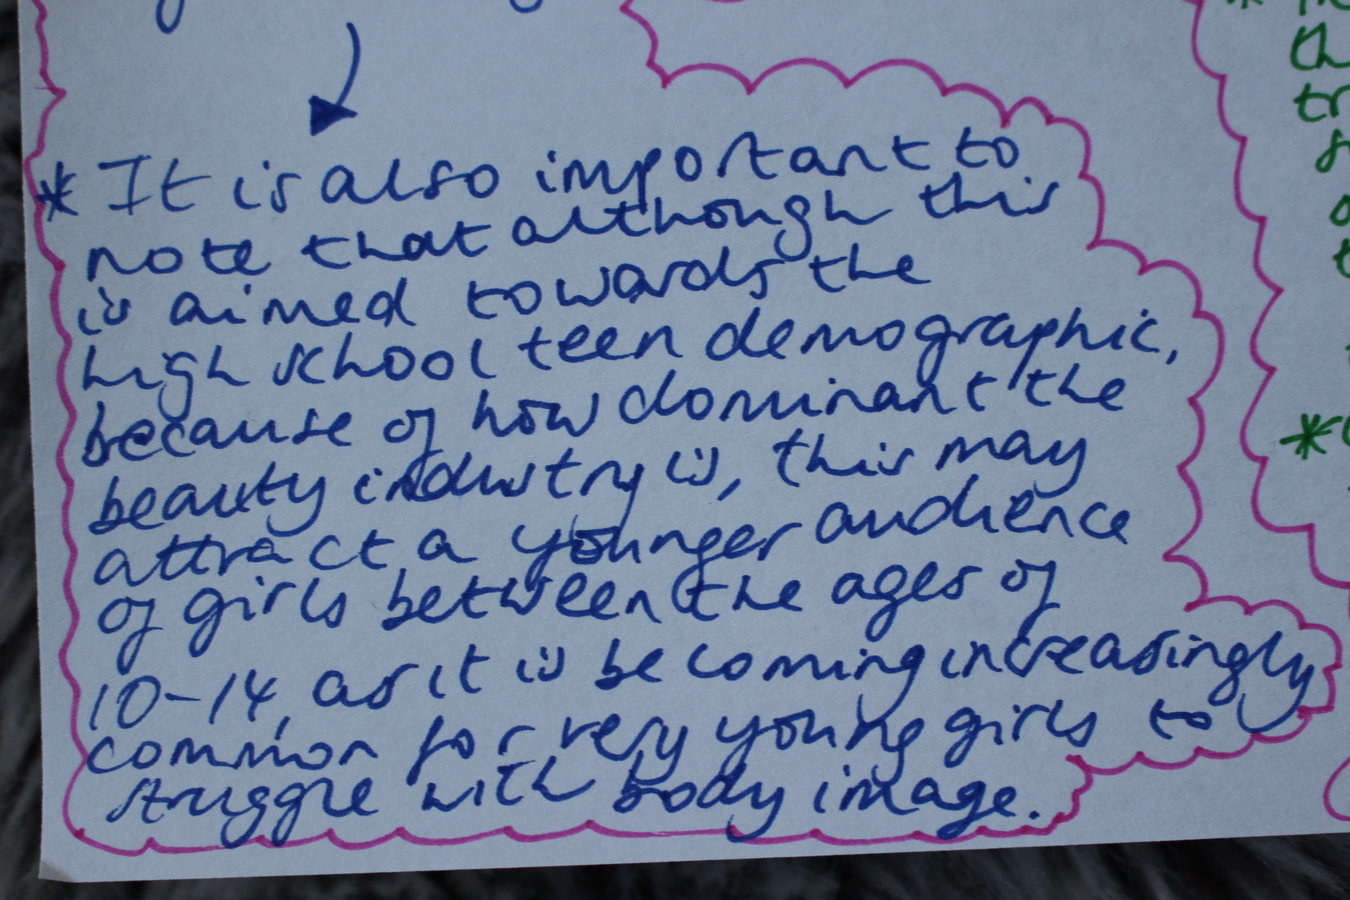 * It is also important to
note that although this
is aimed towards the
high school teen demographic,
because of how dominant the
beauty industry is, this may
attract a younger audience
of girls between the ages of
10-14, as it is becoming increasingly
common for very young girls to
struggle with body image.
th
tr
*